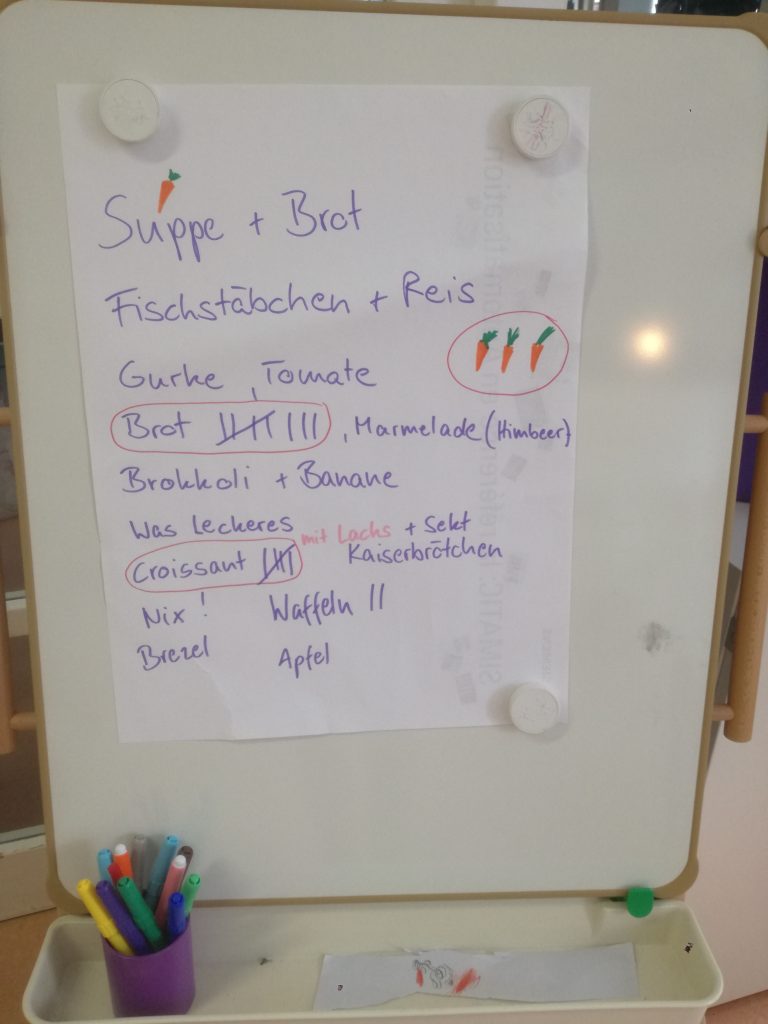 Suppe + Brot
Fischstäbchen + Reis
Gurke, Tomate
Brot |||| |||, Marmelade (Himbeer)
Brokkoli + Banane
Was Leckeres
mit Lachs + Sekt
Croissant |||| Kaiserbrötchen
Nix! Waffeln ||
Brezel Apfel